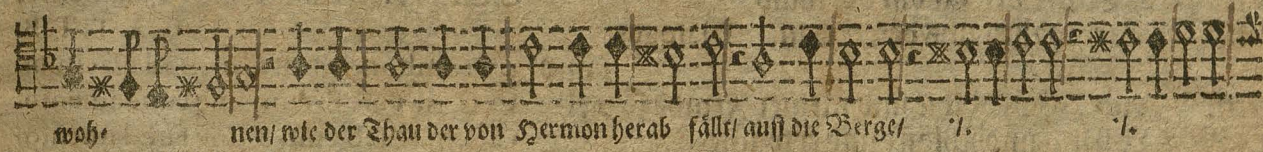 woh- nen/ wie der Thau der von Hermon herab fällt/ auff die Berge/ ./. ./.